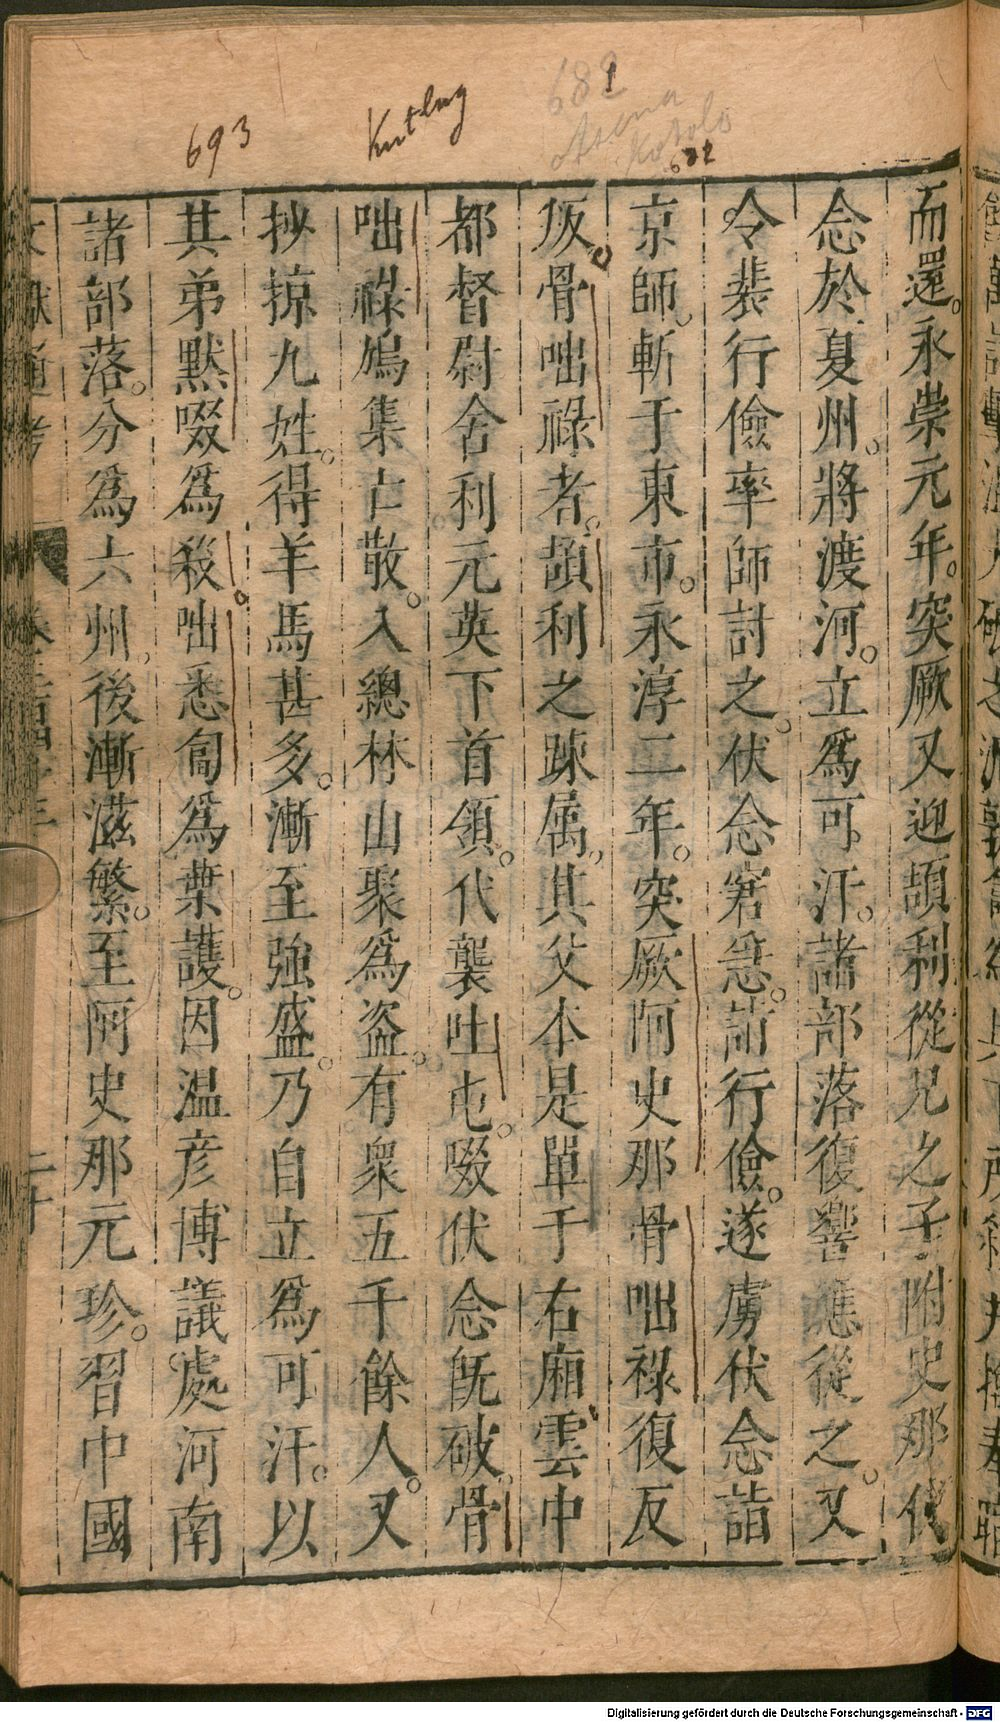 682
Asena
Kotolo
682
Kutlug
693
而還。永崇元年。突厥又迎頡利從兄之子附史那伏
念於夏州。將渡河。立爲可汗。諸部落復響應從之。又
令裴行儉率師討之。伏念窘急。詣行儉。遂虜伏念詣
京師。斬于東市。永淳二年。突厥阿史那骨咄祿復反
叛。骨咄祿者。頡利之疎属。其父本是單于右廂雲中
都督尉舍利元英下首領。代襲吐屯啜。伏念旣破。骨
咄祿鳩集亡散。入總林山聚爲盗。有衆五千餘人。又
抄掠九姓。得羊馬甚多。漸至強盛。乃自立爲可汗。以
其弟默啜爲殺。咄悉匐爲葉護。因温彦博議處河南
諸部落。分爲六州。後漸滋繁。至阿史那元珍。習中國
文獻通考
二十
Digitalisierung gefördert durch die Deutsche Forschungsgemeinschaft - DFG